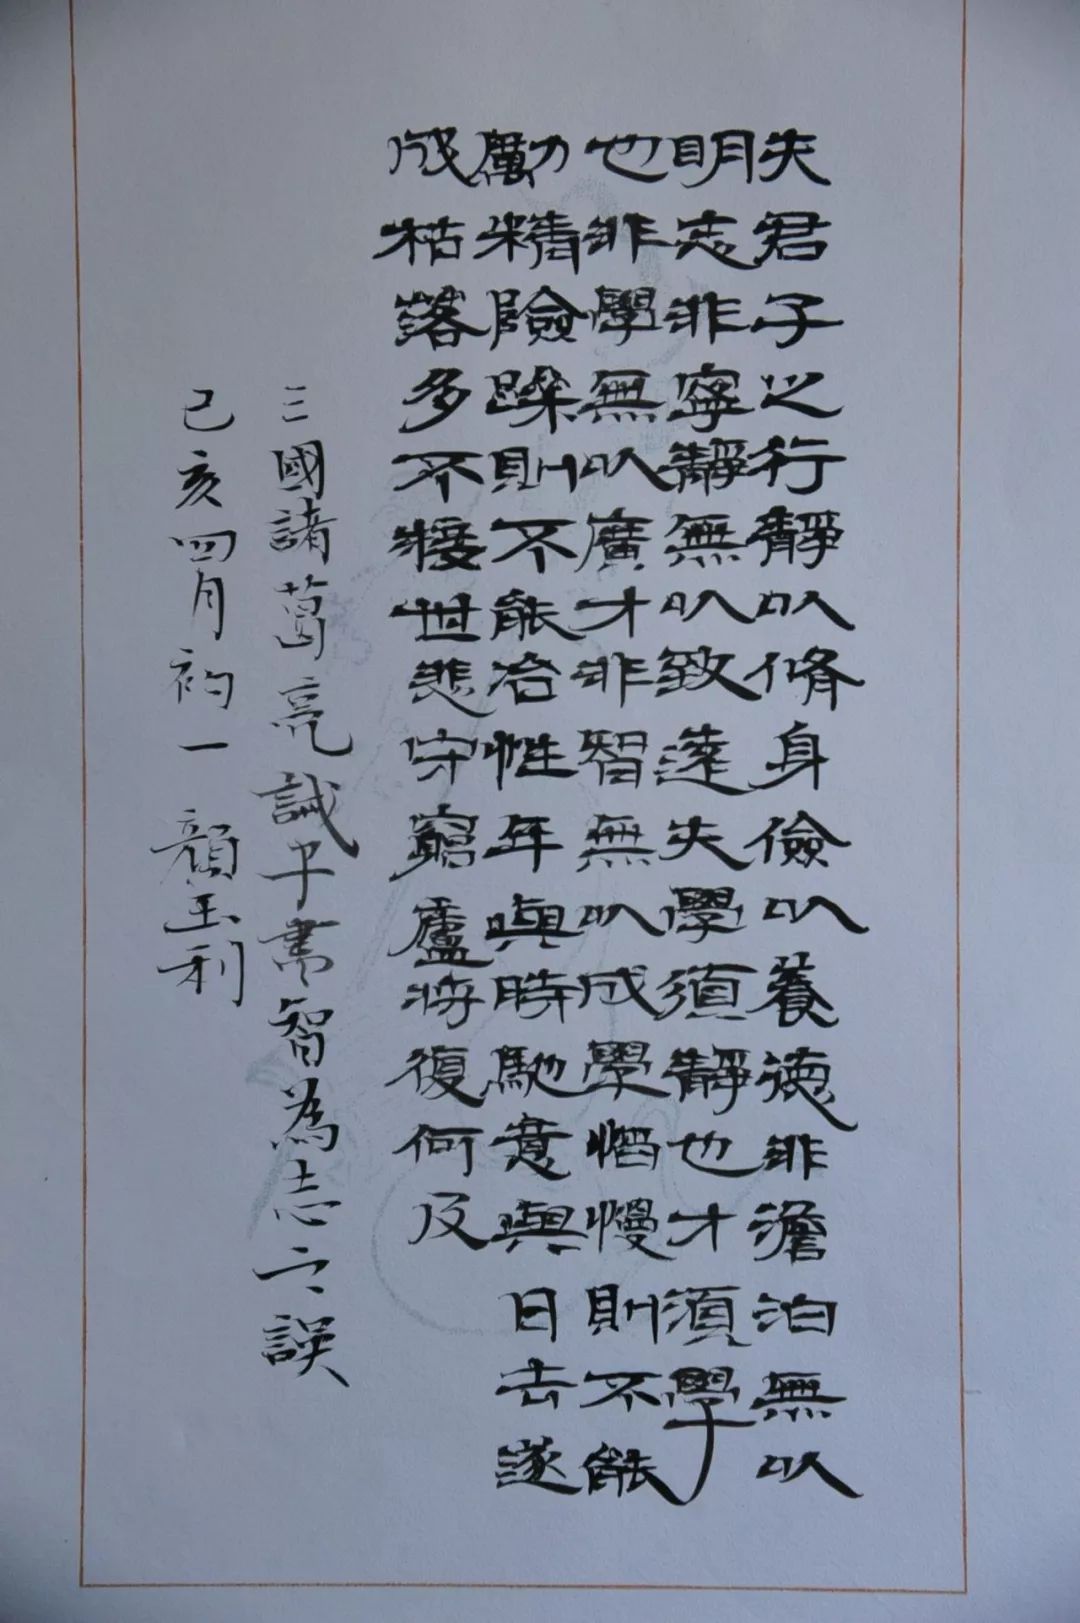 夫君子之行靜以脩身儉以養德非澹泊無以
明志非寧靜無以致遠夫學須靜也才須學
也非學無以廣才非智無以成學慆慢則不能
勵精險躁則不能冶性年與時馳意與日去遂
成枯落多不接世悲守窮廬將復何及
三國諸葛亮誡子書智為志之誤
己亥四月初一 顏玉利